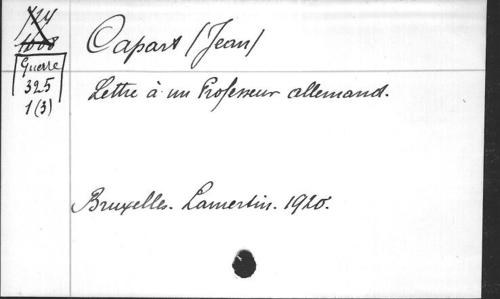 Capart (Jean)
Guerre
325
1(3)
Lettre à un Professeur allemand.
Bruxelles. Lamertin. 1920.